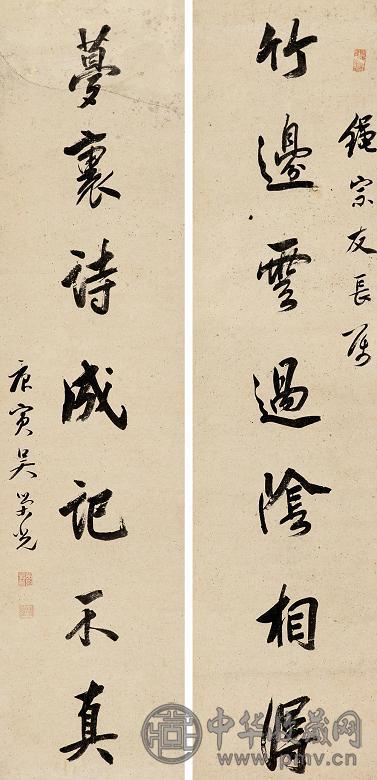 繩宗友長屬
竹邊雲過陰相得
夢裏詩成記不真
庚寅吳榮光
中华收藏网
www.pmv.cn